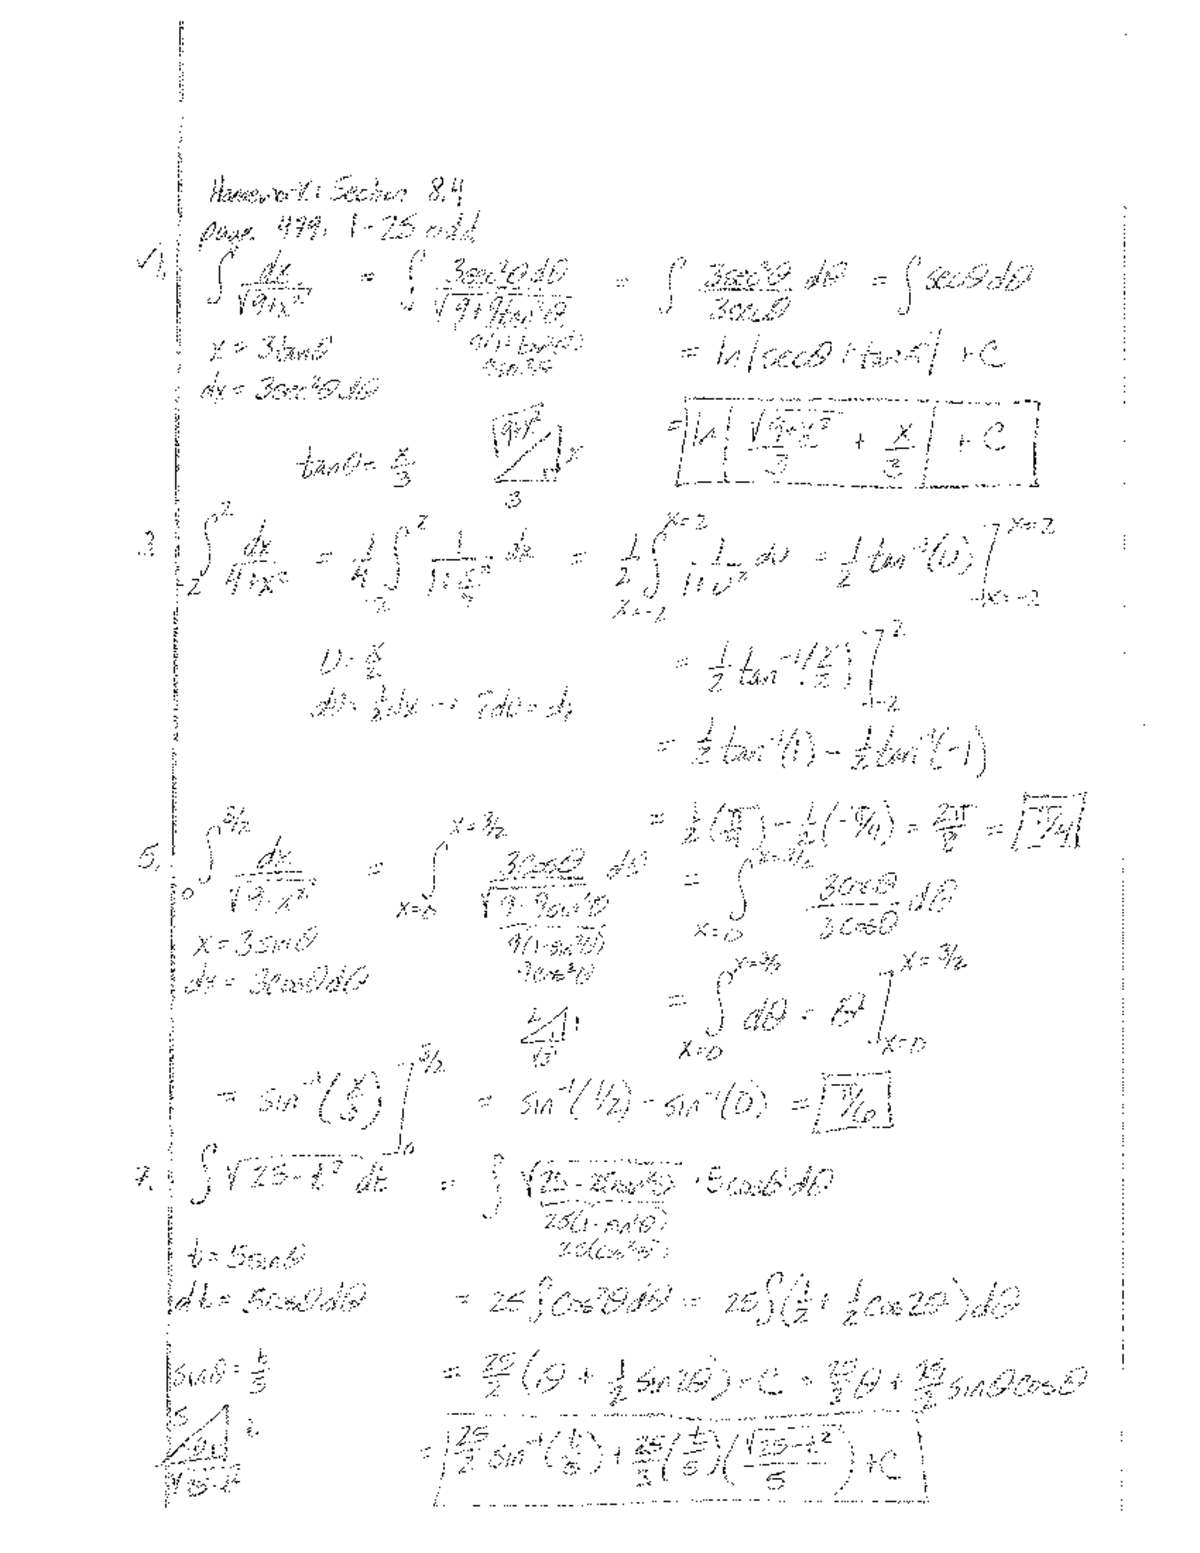 Homework: Section 8.4
page 479: 1-25 odd
√1. ∫ dx/√(9+x²) = ∫ 3sec²θdθ/√(9+9tan²θ) = ∫ 3sec²θ/3secθ dθ = ∫secθdθ
x = 3tanθ
dx = 3sec²θdθ
= ln|secθ+tanθ| + C
tanθ = x/3
√(9+x²) x 3
= ln|√(9+x²)/3 + x/3| + C
3. ∫₋₂² dx/(4+x²) = 1/4 ∫₋₂² 1/(1+x²/4) dx = 1/2 ∫ x=-2 x=2 1/(1+u²) du = 1/2 tan⁻¹(u)] x=-2 x=2
u = x/2
du = 1/2 dx → 2du = dx
= 1/2 tan⁻¹(x/2)] -2 2
= 1/2 tan⁻¹(1) - 1/2 tan⁻¹(-1)
= 1/2(π/4) - 1/2(-π/4) = 2π/8 = π/4
5. ∫ 0 3/2 dx/√(9-x²) = ∫ x=0 x=3/2 3cosθ/√(9-9sin²θ) dθ = ∫ x=0 x=3/2 3cosθ/3cosθ dθ
9(1-sin²θ)
9cos²θ
x = 3sinθ
dx = 3cosθdθ
= ∫ x=0 x=3/2 dθ = θ] x=0 x=3/2
= sin⁻¹(x/3)] 0 3/2 = sin⁻¹(1/2) - sin⁻¹(0) = π/6
7. ∫√(25-t²) dt = ∫√(25-25sin²θ) · 5cosθdθ
25(1-sin²θ)
25(cos²θ)
t = 5sinθ
dt = 5cosθdθ = 25∫cos²θdθ = 25∫(1/2 + 1/2 cos2θ)dθ
sinθ = t/5 = 25/2 (θ + 1/2 sin2θ) + C = 25/2 θ + 25/2 sinθcosθ
5 t √(25-t²)
= 25/2 sin⁻¹(t/5) + 25/2 (t/5)(√(25-t²)/5) + C